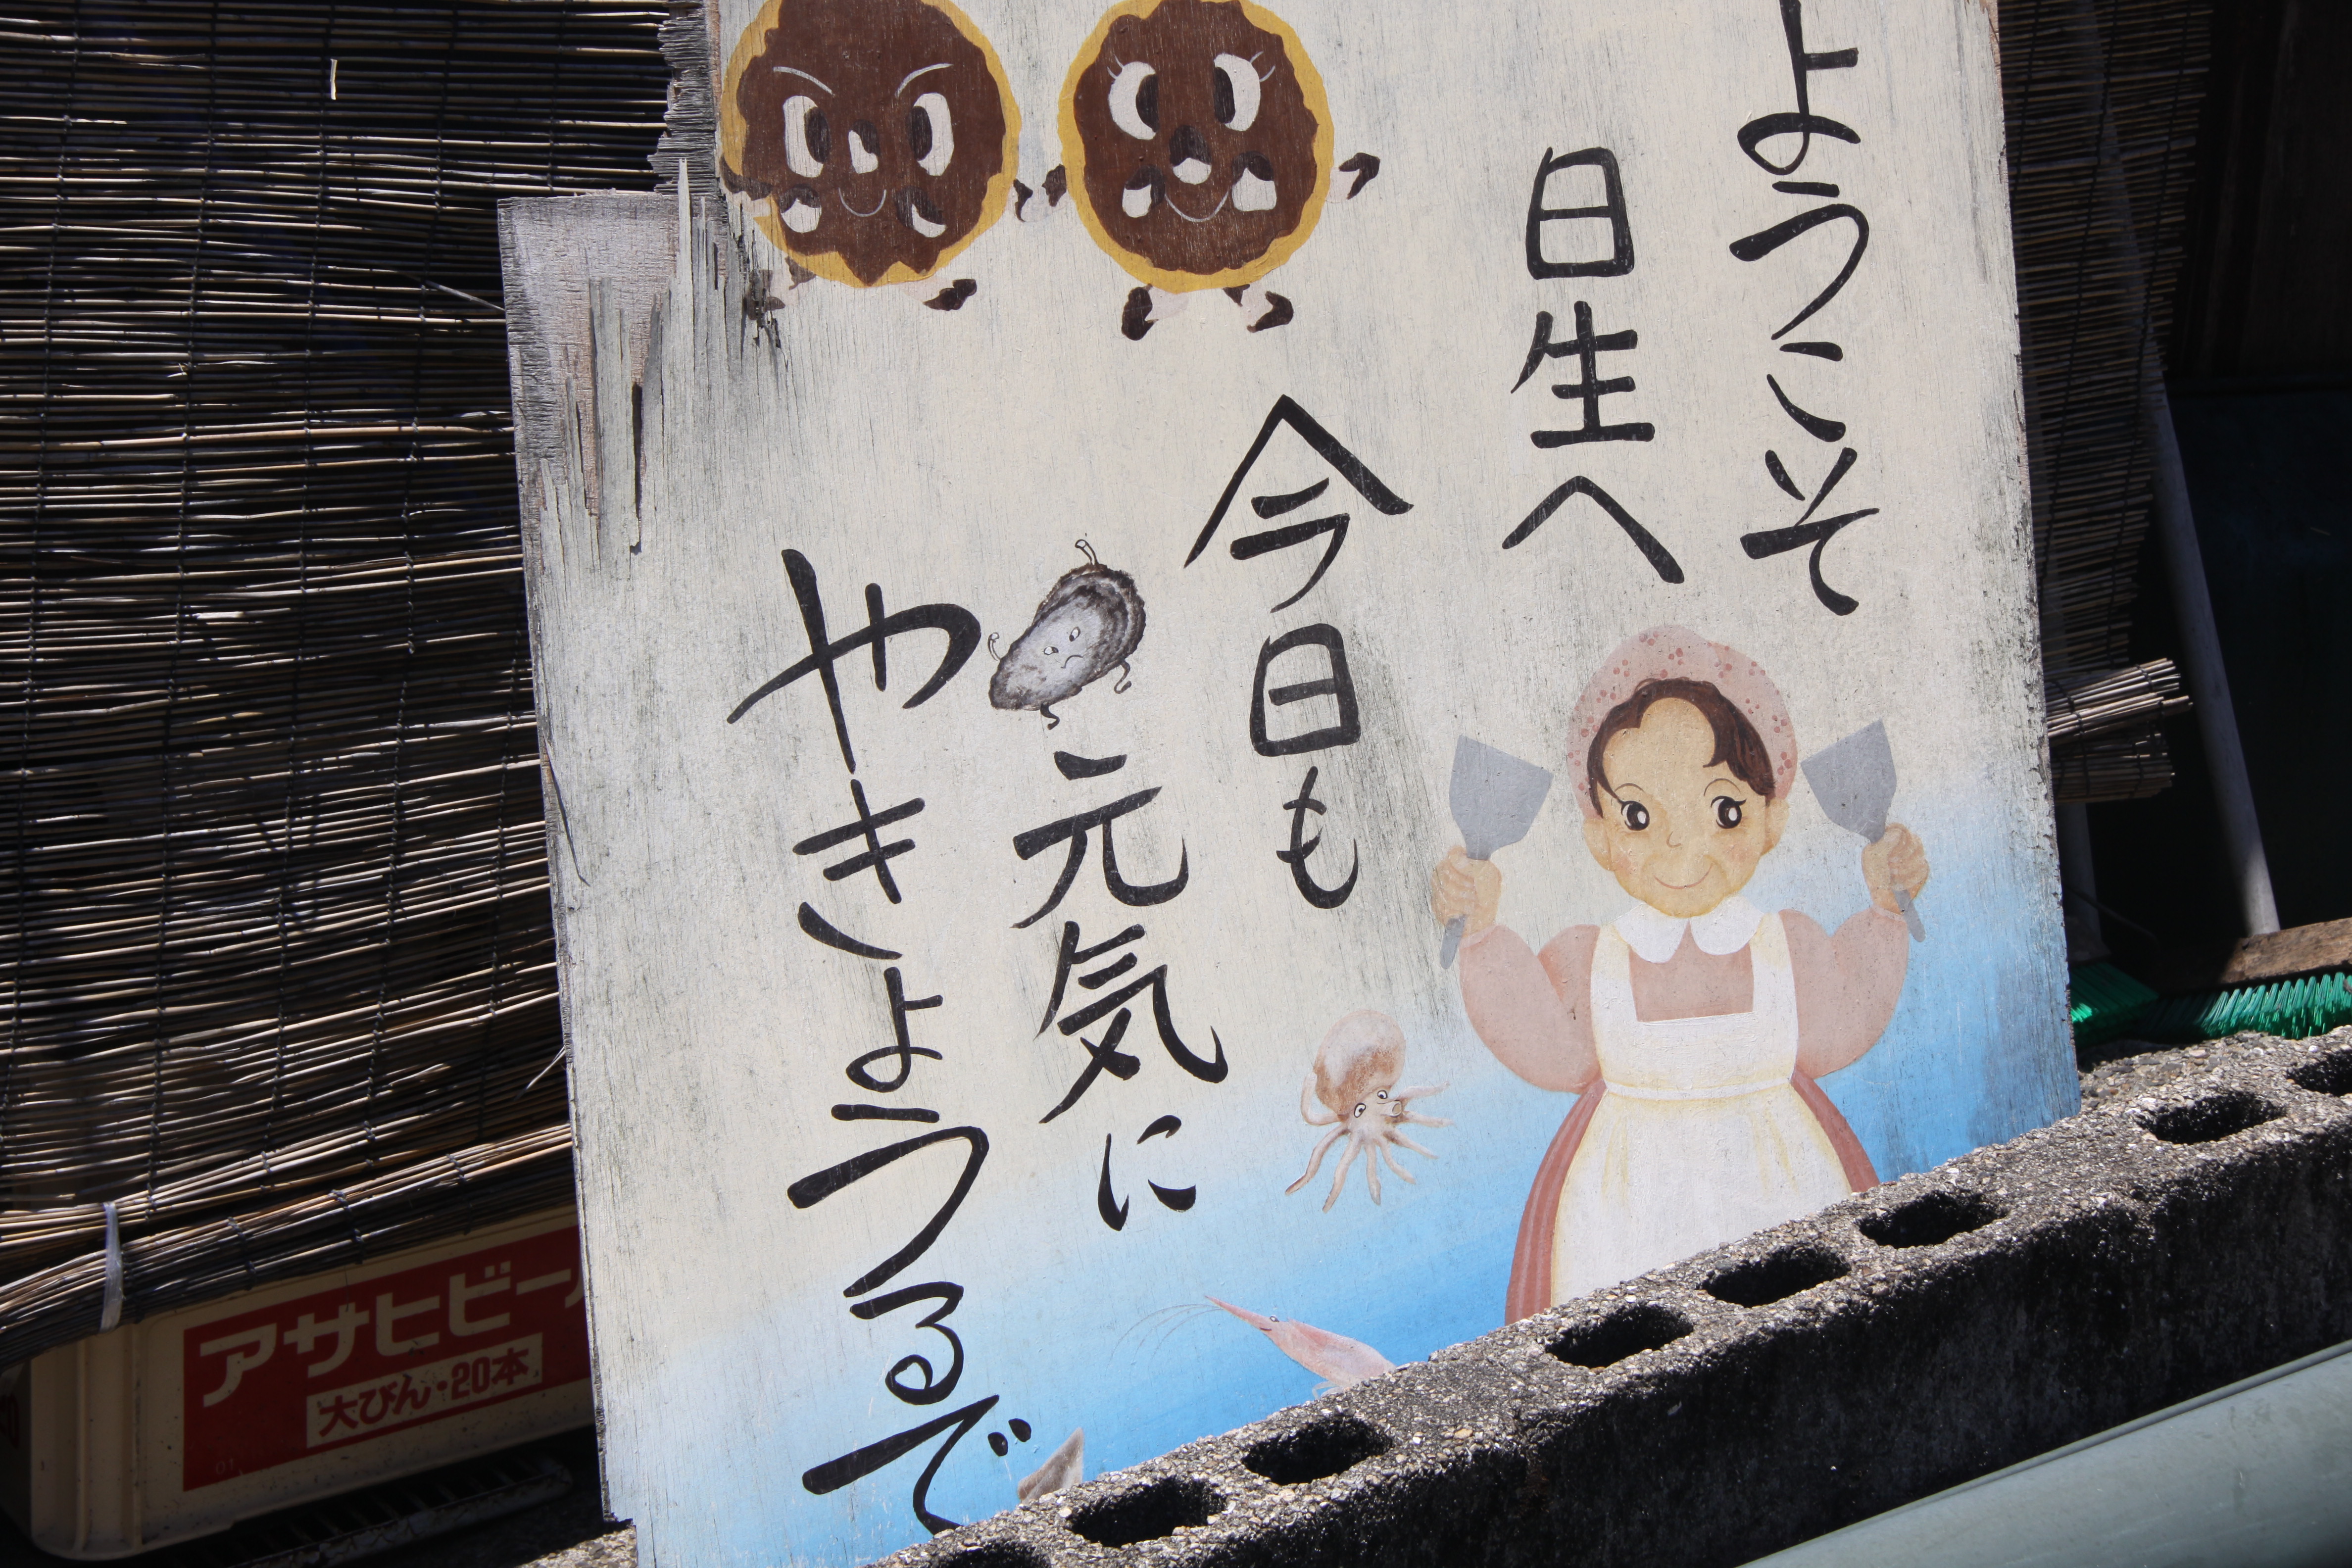 ようこそ
日生へ
今日も
元気に
やきょうるで
アサヒビー
大びん・20本